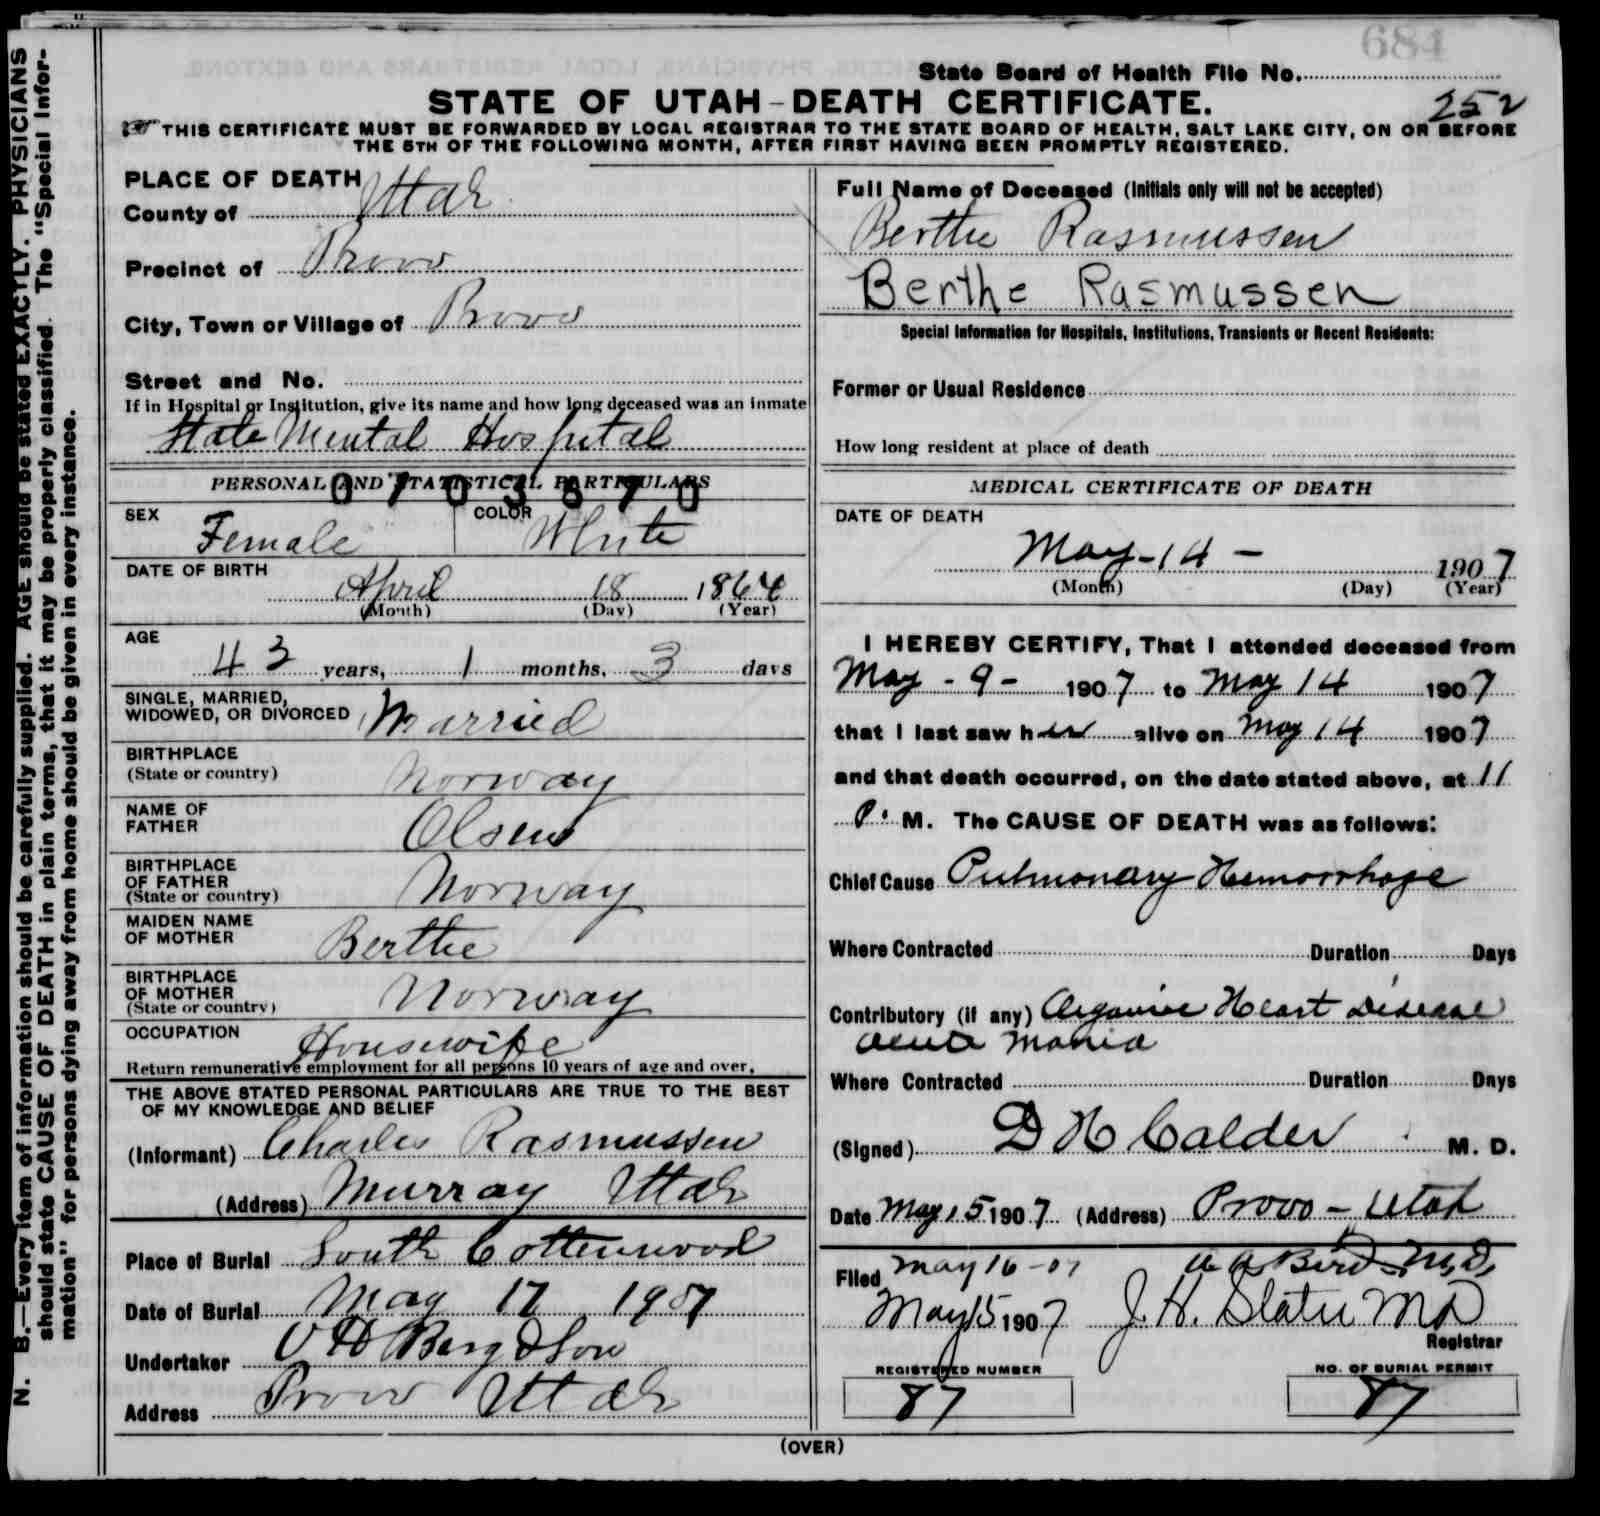 684
State Board of Health File No.
STATE OF UTAH - DEATH CERTIFICATE.
252
THIS CERTIFICATE MUST BE FORWARDED BY LOCAL REGISTRAR TO THE STATE BOARD OF HEALTH, SALT LAKE CITY, ON OR BEFORE
THE 5TH OF THE FOLLOWING MONTH, AFTER FIRST HAVING BEEN PROMPTLY REGISTERED.
N. B.—Every item of information should be carefully supplied. AGE should be stated EXACTLY. PHYSICIANS
should state CAUSE OF DEATH in plain terms, that it may be properly classified. The "Special Infor-
mation" for persons dying away from home should be given in every instance.
PLACE OF DEATH
County of Utah
Precinct of Provo
City, Town or Village of Provo
Street and No.
If in Hospital or Institution, give its name and how long deceased was an inmate
State Mental Hospital
PERSONAL AND STATISTICAL PARTICULARS
0703670
SEX Female COLOR White
DATE OF BIRTH
April 18 1864
(Month) (Day) (Year)
AGE
43 years, 1 months, 3 days
SINGLE, MARRIED,
WIDOWED, OR DIVORCED Married
BIRTHPLACE
(State or country) Norway
NAME OF
FATHER Olsen
BIRTHPLACE
OF FATHER
(State or country) Norway
MAIDEN NAME
OF MOTHER Berthe
BIRTHPLACE
OF MOTHER
(State or country) Norway
OCCUPATION Housewife
Return remunerative employment for all persons 10 years of age and over,
THE ABOVE STATED PERSONAL PARTICULARS ARE TRUE TO THE BEST
OF MY KNOWLEDGE AND BELIEF
(Informant) Charles Rasmussen
(Address) Murray Utah
Place of Burial South Cottenwood
Date of Burial May 17 1907
Undertaker O H Berg & Son
Address Provo Utah
Full Name of Deceased (Initials only will not be accepted)
Berthe Rasmussen
Berthe Rasmussen
Special Information for Hospitals, Institutions, Transients or Recent Residents:
Former or Usual Residence
How long resident at place of death
MEDICAL CERTIFICATE OF DEATH
DATE OF DEATH
May - 14 - 1907
(Month) (Day) (Year)
I HEREBY CERTIFY, That I attended deceased from
May - 9 - 1907 to May 14 1907
that I last saw her alive on May 14 1907
and that death occurred, on the date stated above, at 11
P. M. The CAUSE OF DEATH was as follows:
Chief Cause Pulmonary Hemorrhage
Where Contracted Duration Days
Contributory (if any) Organic Heart Disease
Acute Mania
Where Contracted Duration Days
(Signed) D H Calder M. D.
Date May 15 1907 (Address) Provo - Utah
Filed May 16 - 07 Bird M.D.
May 15 1907 J. H. Slater MD
Registrar
REGISTERED NUMBER NO. OF BURIAL PERMIT
87 87
(OVER)